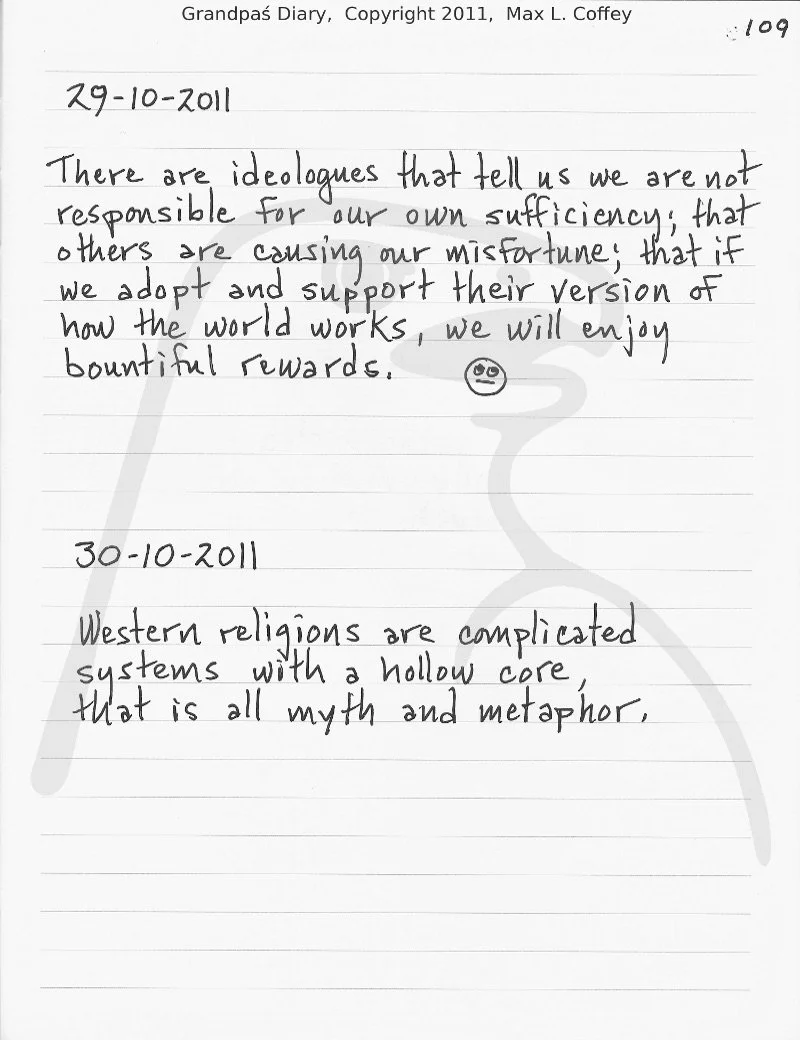 Grandpaś Diary, Copyright 2011, Max L. Coffey
109
29-10-2011
There are ideologues that tell us we are not
responsible for our own sufficiency; that
others are causing our misfortune; that if
we adopt and support their version of
how the world works, we will enjoy
bountiful rewards.
30-10-2011
Western religions are complicated
systems with a hollow core,
that is all myth and metaphor.